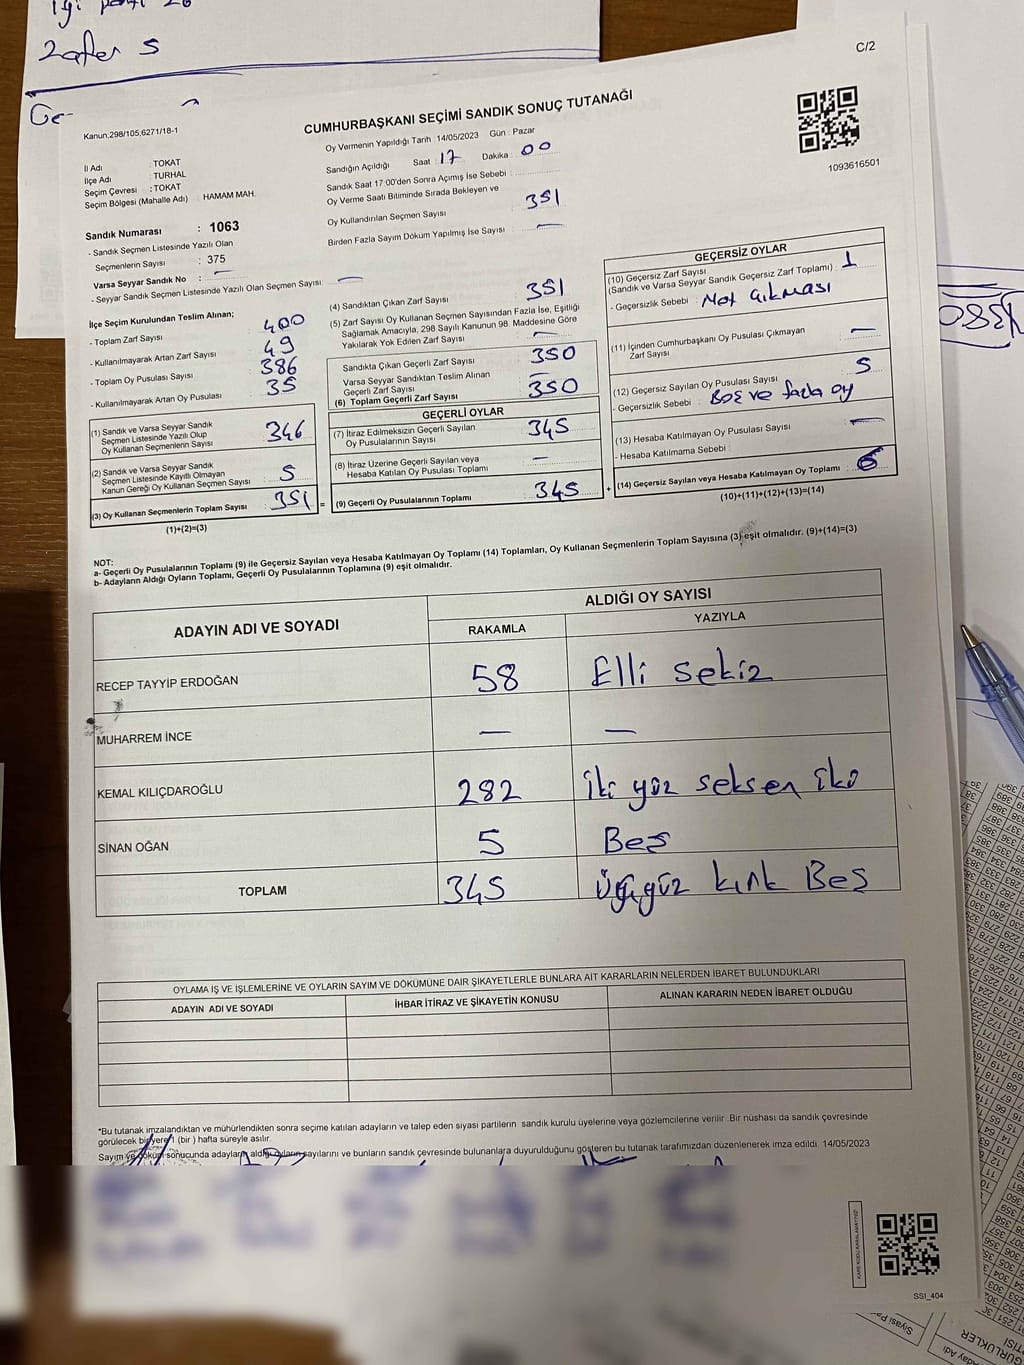 iyi parti 26
Zafer 5
Ge-
C/2
Kanun.298/105,6271/18-1
CUMHURBAŞKANI SEÇİMİ SANDIK SONUÇ TUTANAĞI
Oy Vermenin Yapıldığı Tarih : 14/05/2023 Gün : Pazar
1093616501
İl Adı : TOKAT
İlçe Adı : TURHAL
Seçim Çevresi : TOKAT
Seçim Bölgesi (Mahalle Adı) : HAMAM MAH.
Sandık Numarası : 1063
- Sandık Seçmen Listesinde Yazılı Olan
Seçmenlerin Sayısı : 375
Varsa Seyyar Sandık No : —
- Seyyar Sandık Seçmen Listesinde Yazılı Olan Seçmen Sayısı: —
Sandığın Açıldığı Saat 17 Dakika : 00
Sandık Saat 17:00'den Sonra Açımış İse Sebebi :
Oy Verme Saati Bitiminde Sırada Bekleyen ve
Oy Kullandırılan Seçmen Sayısı 351
Birden Fazla Sayım Döküm Yapılmış İse Sayısı : —
İlçe Seçim Kurulundan Teslim Alınan;
- Toplam Zarf Sayısı 400
- Kullanılmayarak Artan Zarf Sayısı 49
- Toplam Oy Pusulası Sayısı 386
- Kullanılmayarak Artan Oy Pusulası 35
(1) Sandık ve Varsa Seyyar Sandık
Seçmen Listesinde Yazılı Olup
Oy Kullanan Seçmenlerin Sayısı 346
(2) Sandık ve Varsa Seyyar Sandık
Seçmen Listesinde Kayıtlı Olmayan
Kanun Gereği Oy Kullanan Seçmen Sayısı 5
(3) Oy Kullanan Seçmenlerin Toplam Sayısı 351 =
(1)+(2)=(3)
(4) Sandıktan Çıkan Zarf Sayısı 351
(5) Zarf Sayısı Oy Kullanan Seçmen Sayısından Fazla İse, Eşitliği
Sağlamak Amacıyla, 298 Sayılı Kanunun 98. Maddesine Göre
Yakılarak Yok Edilen Zarf Sayısı —
Sandıkta Çıkan Geçerli Zarf Sayısı 350
Varsa Seyyar Sandıktan Teslim Alınan
Geçerli Zarf Sayısı —
(6) Toplam Geçerli Zarf Sayısı 350
GEÇERLİ OYLAR
(7) İtiraz Edilmeksizin Geçerli Sayılan
Oy Pusulalarının Sayısı 345
(8) İtiraz Üzerine Geçerli Sayılan veya
Hesaba Katılan Oy Pusulası Toplamı —
(9) Geçerli Oy Pusulalarının Toplamı 345 +
GEÇERSİZ OYLAR
(10) Geçersiz Zarf Sayısı
(Sandık ve Varsa Seyyar Sandık Geçersiz Zarf Toplamı) : 1
- Geçersizlik Sebebi : Not çıkması
(11) İçinden Cumhurbaşkanı Oy Pusulası Çıkmayan
Zarf Sayısı —
(12) Geçersiz Sayılan Oy Pusulası Sayısı 5
- Geçersizlik Sebebi : Boş ve fazla oy
(13) Hesaba Katılmayan Oy Pusulası Sayısı —
- Hesaba Katılmama Sebebi :
(14) Geçersiz Sayılan veya Hesaba Katılmayan Oy Toplamı 6
(10)+(11)+(12)+(13)=(14)
NOT:
a- Geçerli Oy Pusulalarının Toplamı (9) ile Geçersiz Sayılan veya Hesaba Katılmayan Oy Toplamı (14) Toplamları, Oy Kullanan Seçmenlerin Toplam Sayısına (3) eşit olmalıdır. (9)+(14)=(3)
b- Adayların Aldığı Oyların Toplamı, Geçerli Oy Pusulalarının Toplamına (9) eşit olmalıdır.
ADAYIN ADI VE SOYADI
ALDIĞI OY SAYISI
RAKAMLA YAZIYLA
RECEP TAYYİP ERDOĞAN 58 Elli sekiz
MUHARREM İNCE — —
KEMAL KILIÇDAROĞLU 282 iki yüz seksen iki
SİNAN OĞAN 5 Beş
TOPLAM 345 Üçyüz kırk Beş
OYLAMA İŞ VE İŞLEMLERİNE VE OYLARIN SAYIM VE DÖKÜMÜNE DAİR ŞİKAYETLERLE BUNLARA AİT KARARLARIN NELERDEN İBARET BULUNDUKLARI
ADAYIN ADI VE SOYADI İHBAR İTİRAZ VE ŞİKAYETİN KONUSU ALINAN KARARIN NEDEN İBARET OLDUĞU
*Bu tutanak imzalandıktan ve mühürlendikten sonra seçime katılan adayların ve talep eden siyasi partilerin sandık kurulu üyelerine veya gözlemcilerine verilir. Bir nüshası da sandık çevresinde
görülecek bir yere 1 (bir) hafta süreyle asılır.
Sayım ve döküm sonucunda adayların aldığı oyların sayılarını ve bunların sandık çevresinde bulunanlara duyurulduğunu gösteren bu tutanak tarafımızdan düzenlenerek imza edildi. 14/05/2023
SSI_404